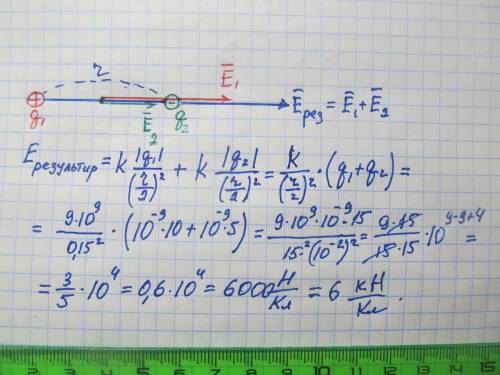 r
+ Ē₁ -
q₁ Ē₂ q₂ Ē рез = Ē₁ + Ē₂
E результир = k |q₁| / (r/2)² + k |q₂| / (r/2)² = k / (r/2)² · (q₁ + q₂) =
= 9·10⁹ / 0,15² · (10⁻⁹·10 + 10⁻⁹·5) = 9·10⁹·10⁻⁹·15 / 15²·(10⁻²)² = 9·15 / 15·15 · 10⁹⁻⁹⁺⁴ =
= 3/5 · 10⁴ = 0,6·10⁴ = 6000 Н/Кл = 6 кН/Кл .
2 3 4 5 6 7 8 9 10 11 12 13 14 15